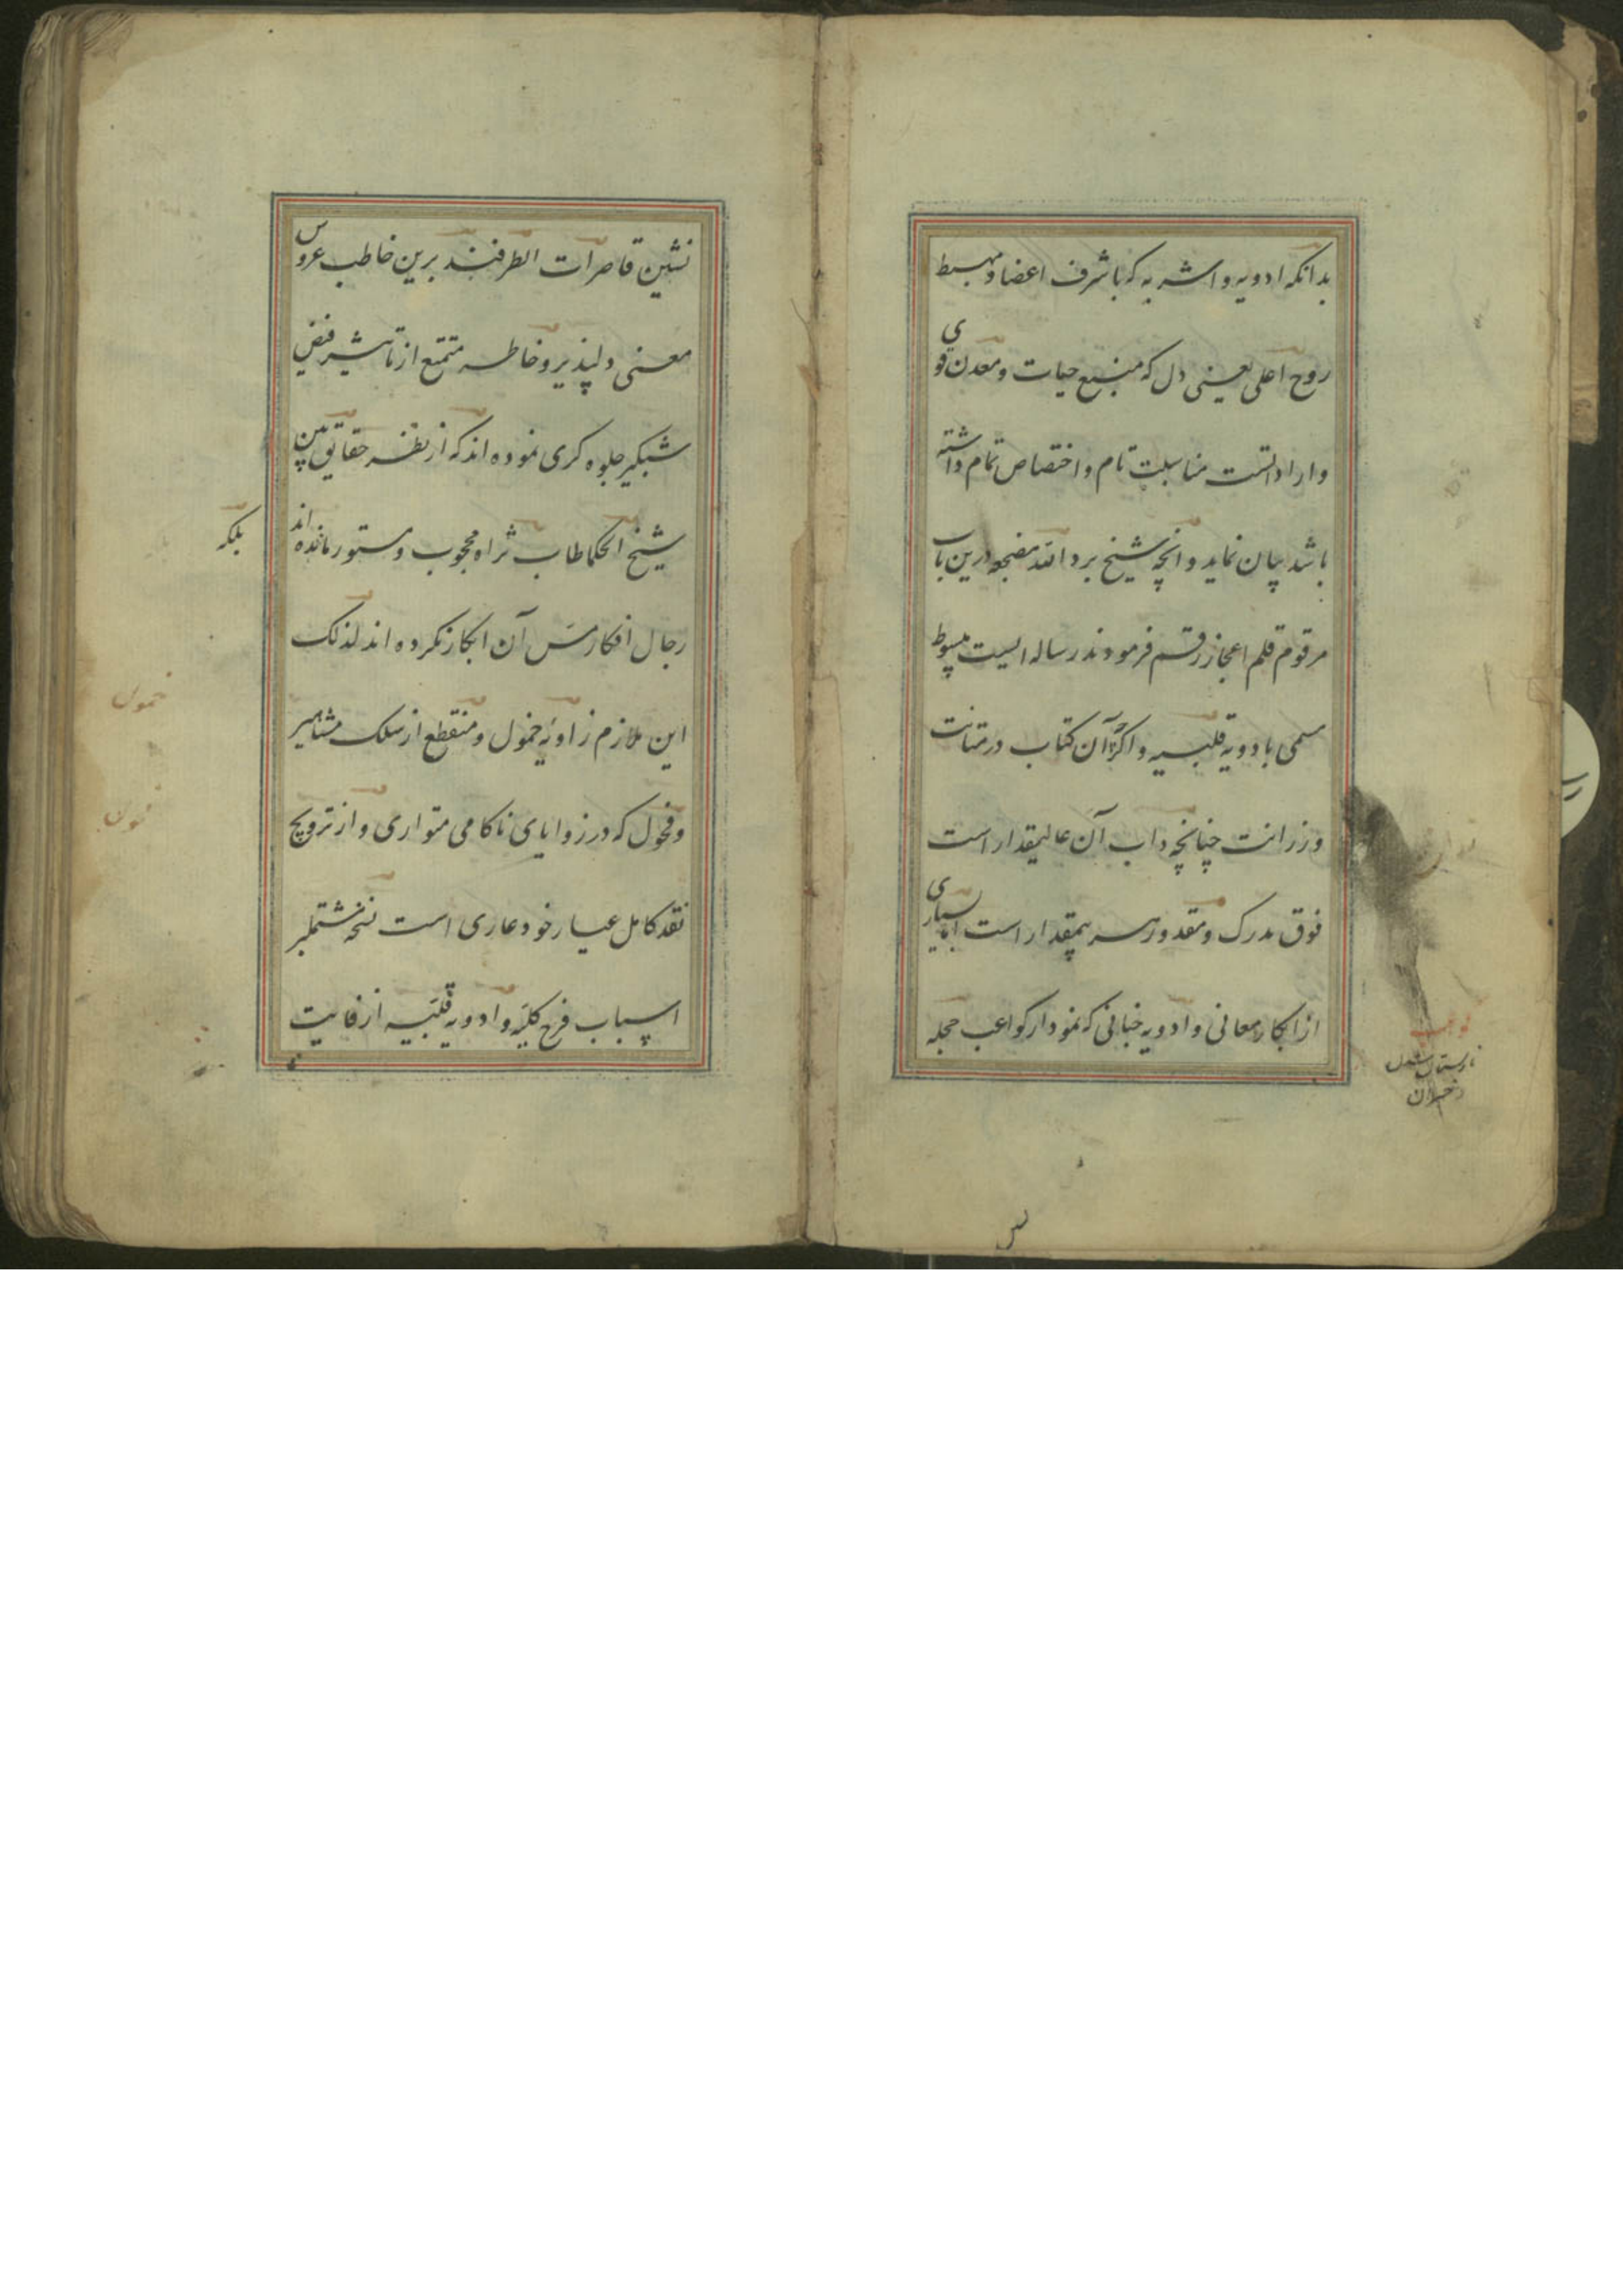 بدانکه ادویه و اشربه که باشرف اعضا و مهبط
روح اعلی یعنی دل که منبع حیات و معدن قوی
وارادتست مناسبت تام و اختصاص تمام داشته
باشد بیان نماید و انچه شیخ برد الله مضجعه درین باب
مرقوم قلم اعجاز رقم فرمودند رساله ایست مبسوط
مسمی بادویه قلبیه و اکثر آن کتاب در متانت
و زرانت چنانچه داب آن عالیمقدار است
فوق مدرک و مقدور هر بیمقدار است اما بسیاری
از ابکار معانی و ادویه خبانی که نمودار کواعب حجله
نشین قاصرات الطرفند برین خاطب عروس
معنی دلپذیر و خاطر متمتع از تاثیر فیض
شبکیر جلوه کری نموده اند که از نظر حقایق بین
شیخ الحکما طاب ثراه محجوب و مستور مانده اند
بلکه
رجال افکار مس آن ابکار نکرده اند لذلک
این ملازم زاویه خمول و منقطع از سلک مشاهیر
و فحول که در زوایای ناکامی متواری و از ترویج
نقد کامل عیار خود عاری است نسخه مشتملبر
اسباب فرح کلیه و ادویه قلبیه از فایت
خمول